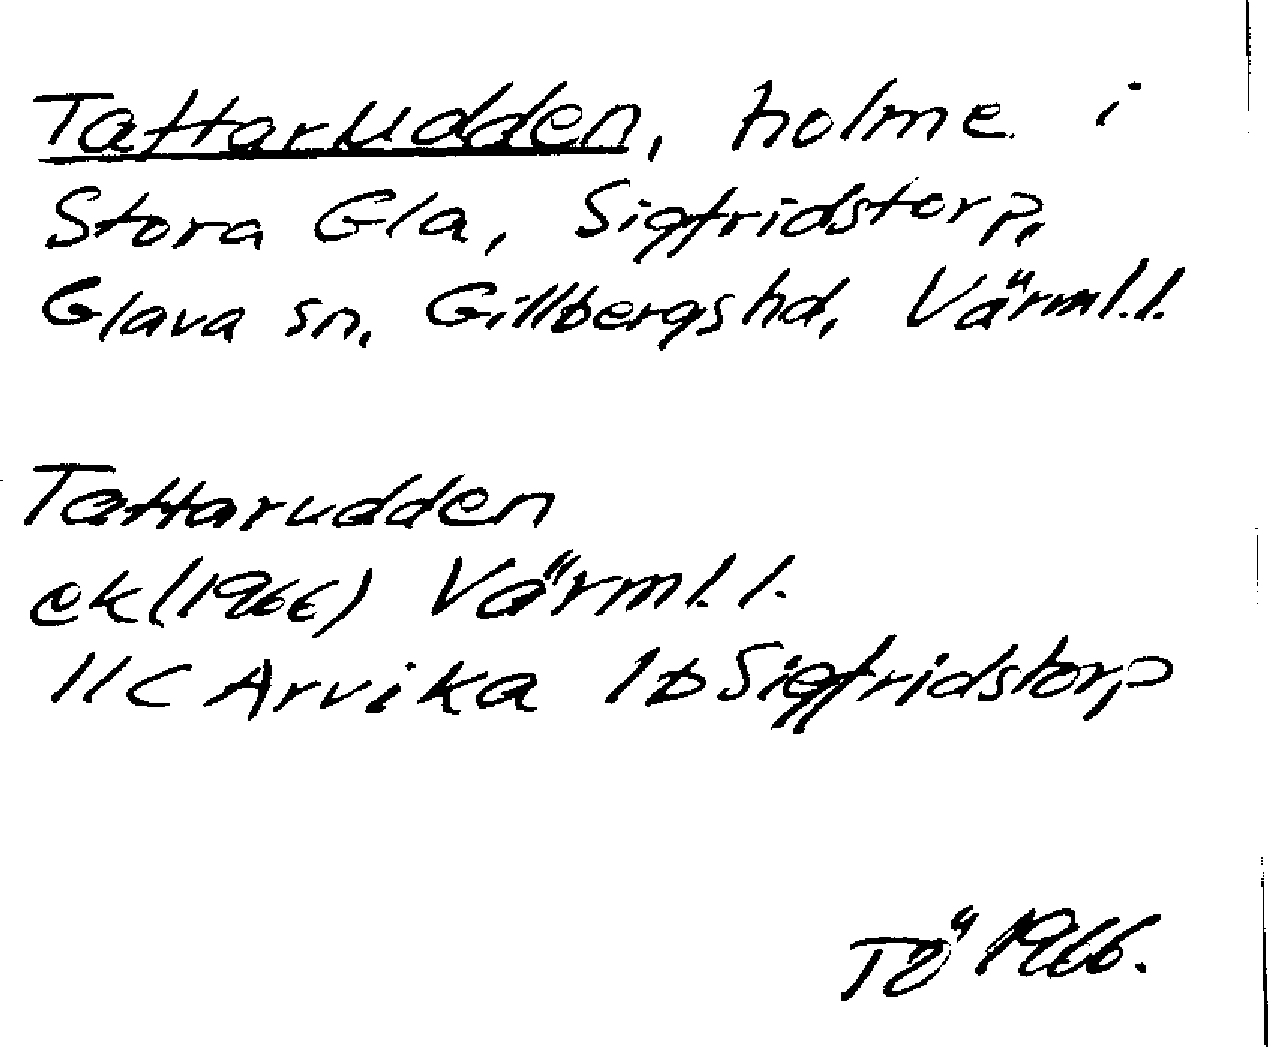 Tattarudden, holme i
Stora Gla, Sigfridstorp,
Glava sn, Gillbergs hd, Värml.l.
Tattarudden
ek (1966) Värml.l.
11C Arvika 1b Sigfridstorp
TÖ 1966.